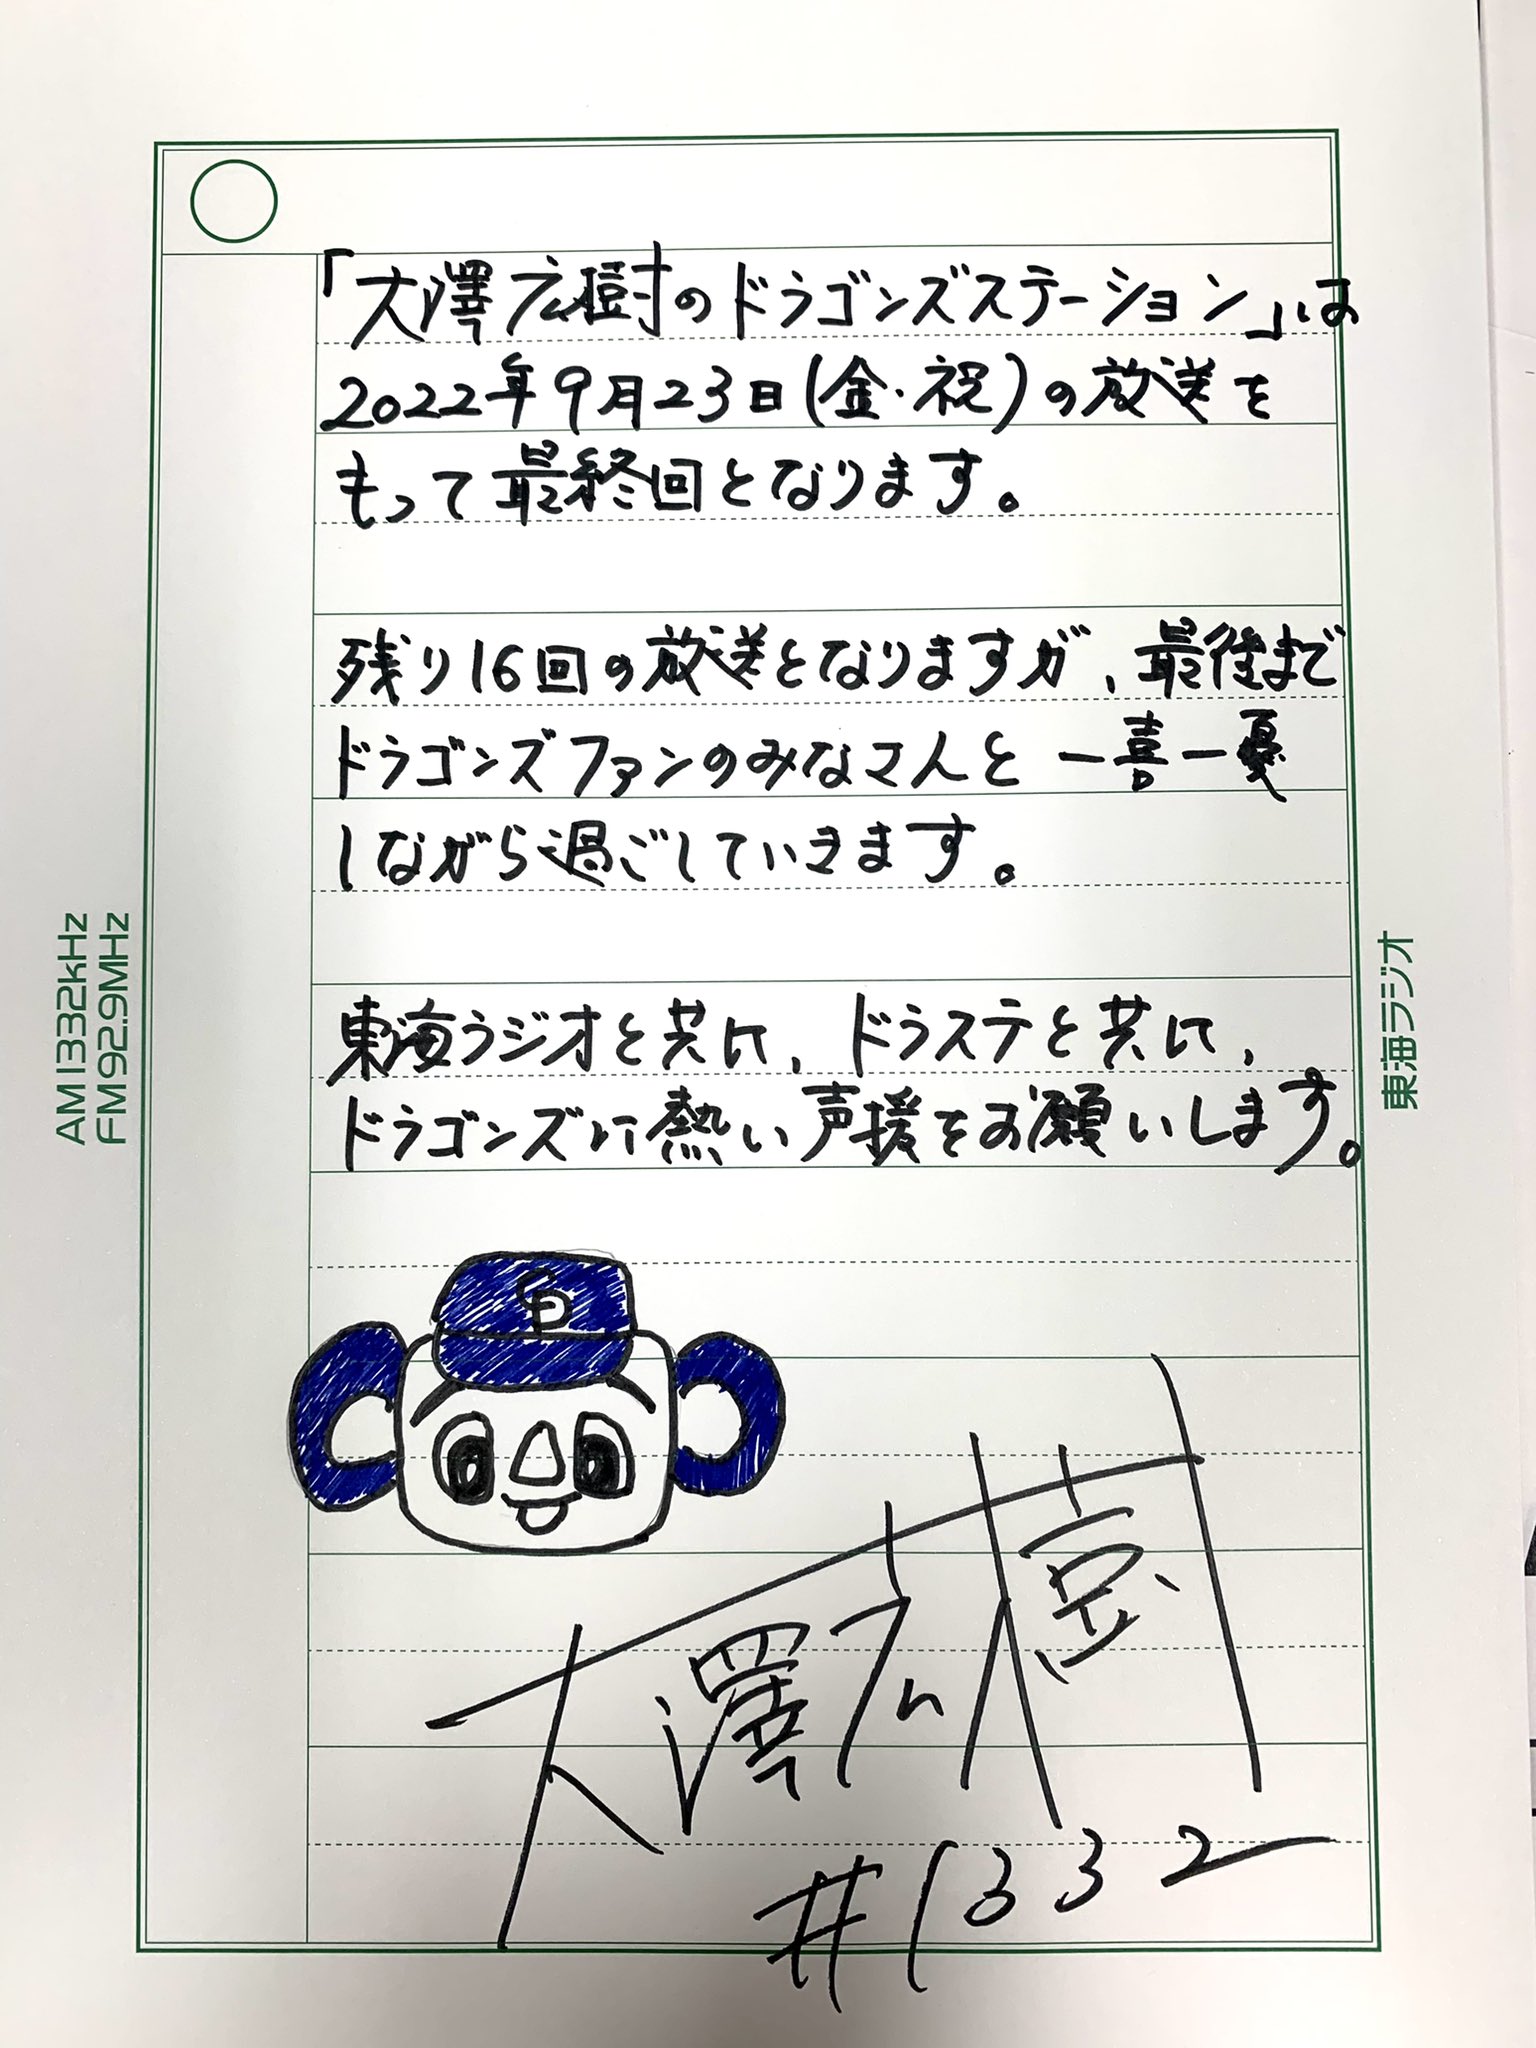 「大澤広樹のドラゴンズステーション」は
2022年9月23日(金・祝)の放送を
もって最終回となります。
残り16回の放送となりますが、最後まで
ドラゴンズファンのみなさんと一喜一憂
しながら過ごしていきます。
東海ラジオと共に、ドラステと共に、
ドラゴンズに熱い声援をお願いします。
CD
大澤広樹
#1332
AM1332kHz
FM92.9MHz
東海ラジオ